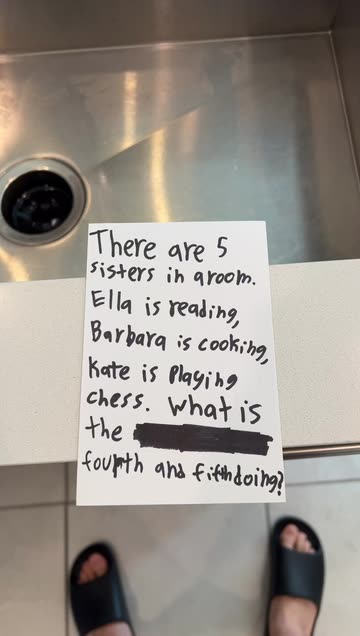 There are 5
sisters in a room.
Ella is reading,
Barbara is cooking,
Kate is Playing
chess. What is
the
fourth and fifth doing?